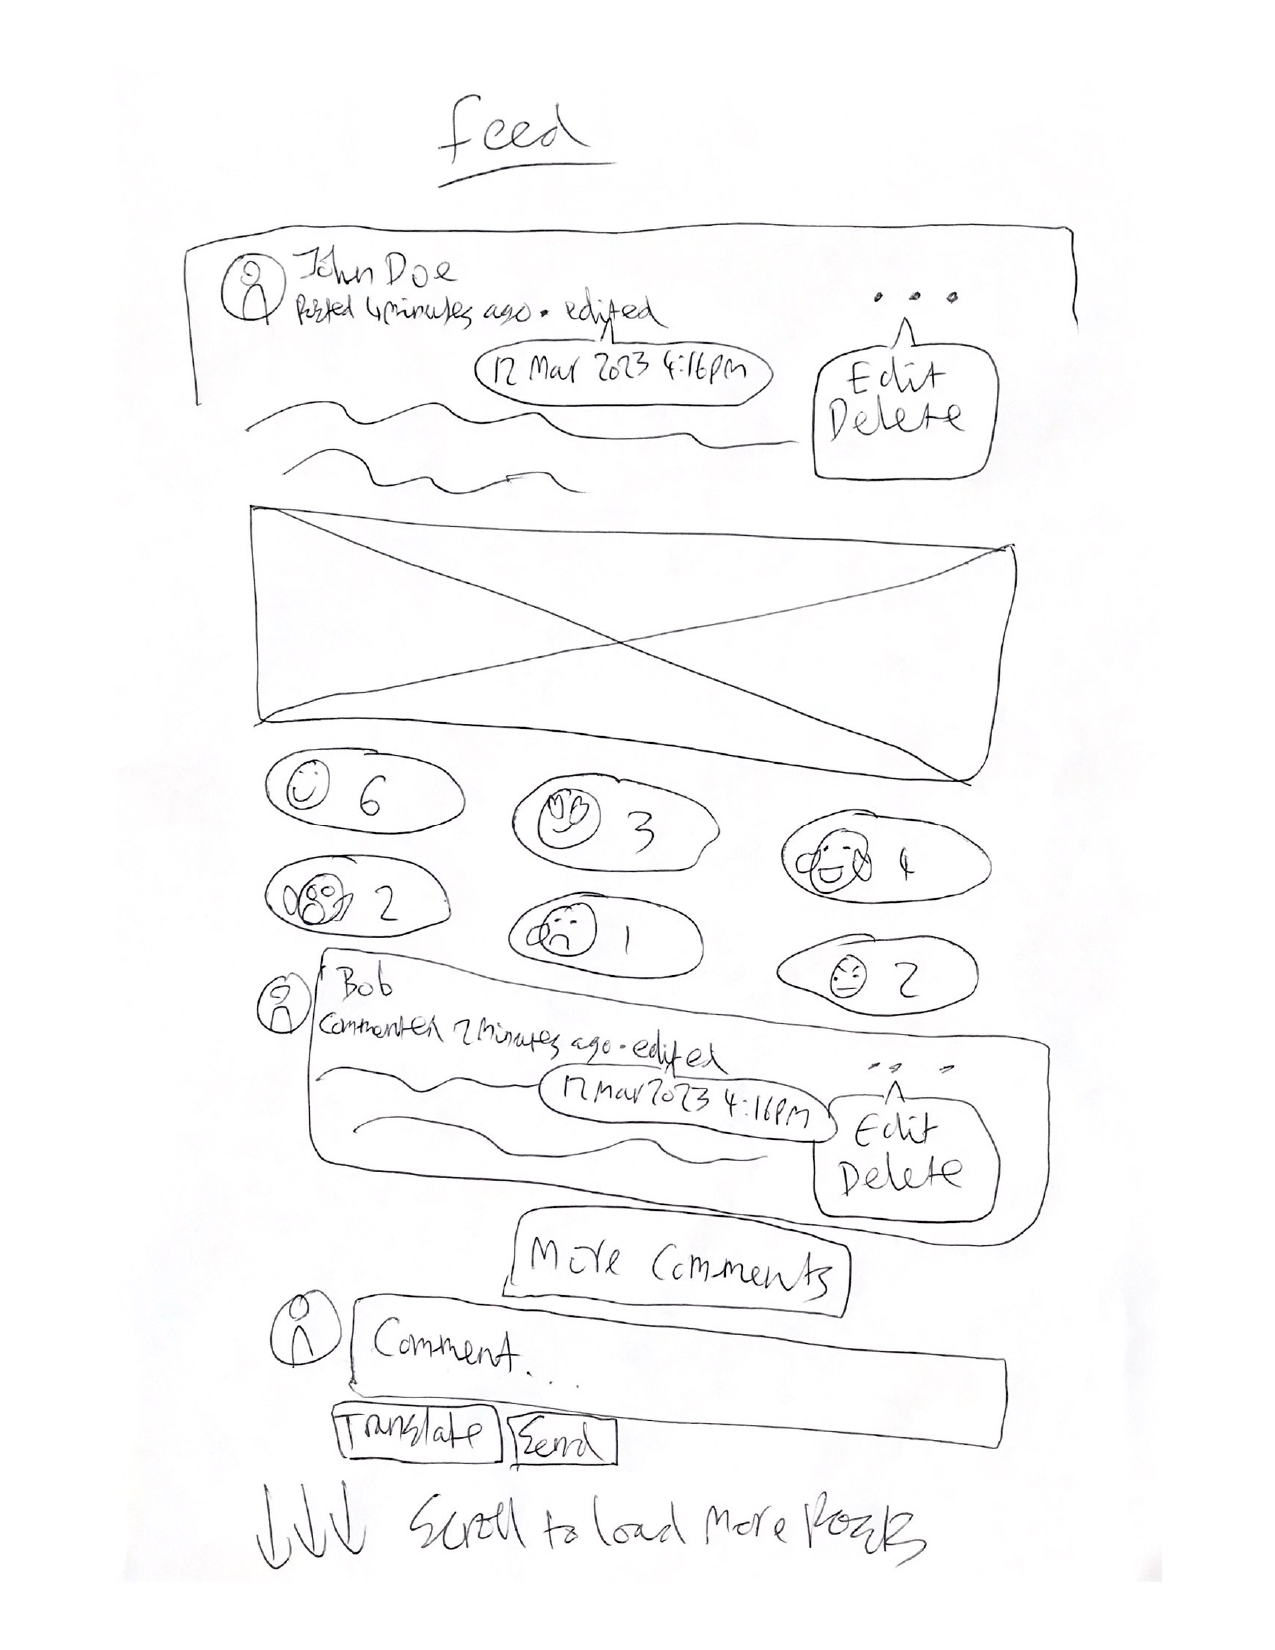 feed
John Doe
Posted 4 minutes ago • edited
• • •
12 Mar 2023 4:16pm
Edit
Delete
6
3
4
2
1
2
Bob
Commented 2 minutes ago • edited
• • •
12 Mar 2023 4:16pm
Edit
Delete
More Comments
Comment...
Translate
Send
Scroll to load more posts